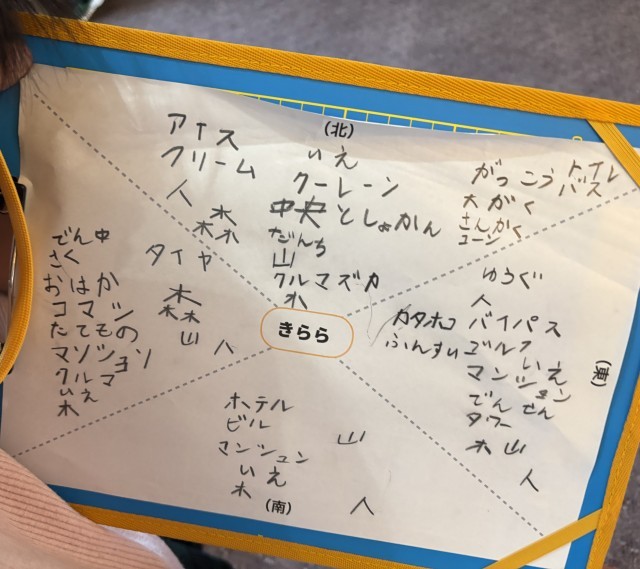 (北)
アイス
クリーム
人
木
木木
いえ
クーレーン
中央としょかん
だんち
山
クルマズカ
木
がっこう トイレ
バス
大がく
さんかく
コーン
でん中
さく
おはか
コマツ
たてもの
マンション
クルマ
いえ
木
タイヤ
木
木木
山
人
きらら
ゆうぐ
人
カタホコ バイパス
ふんすい ゴルフ
いえ
マンション
でんせん
タワー
木 山
人
(東)
ホテル
ビル
マンション
いえ
木
山
人
(南)